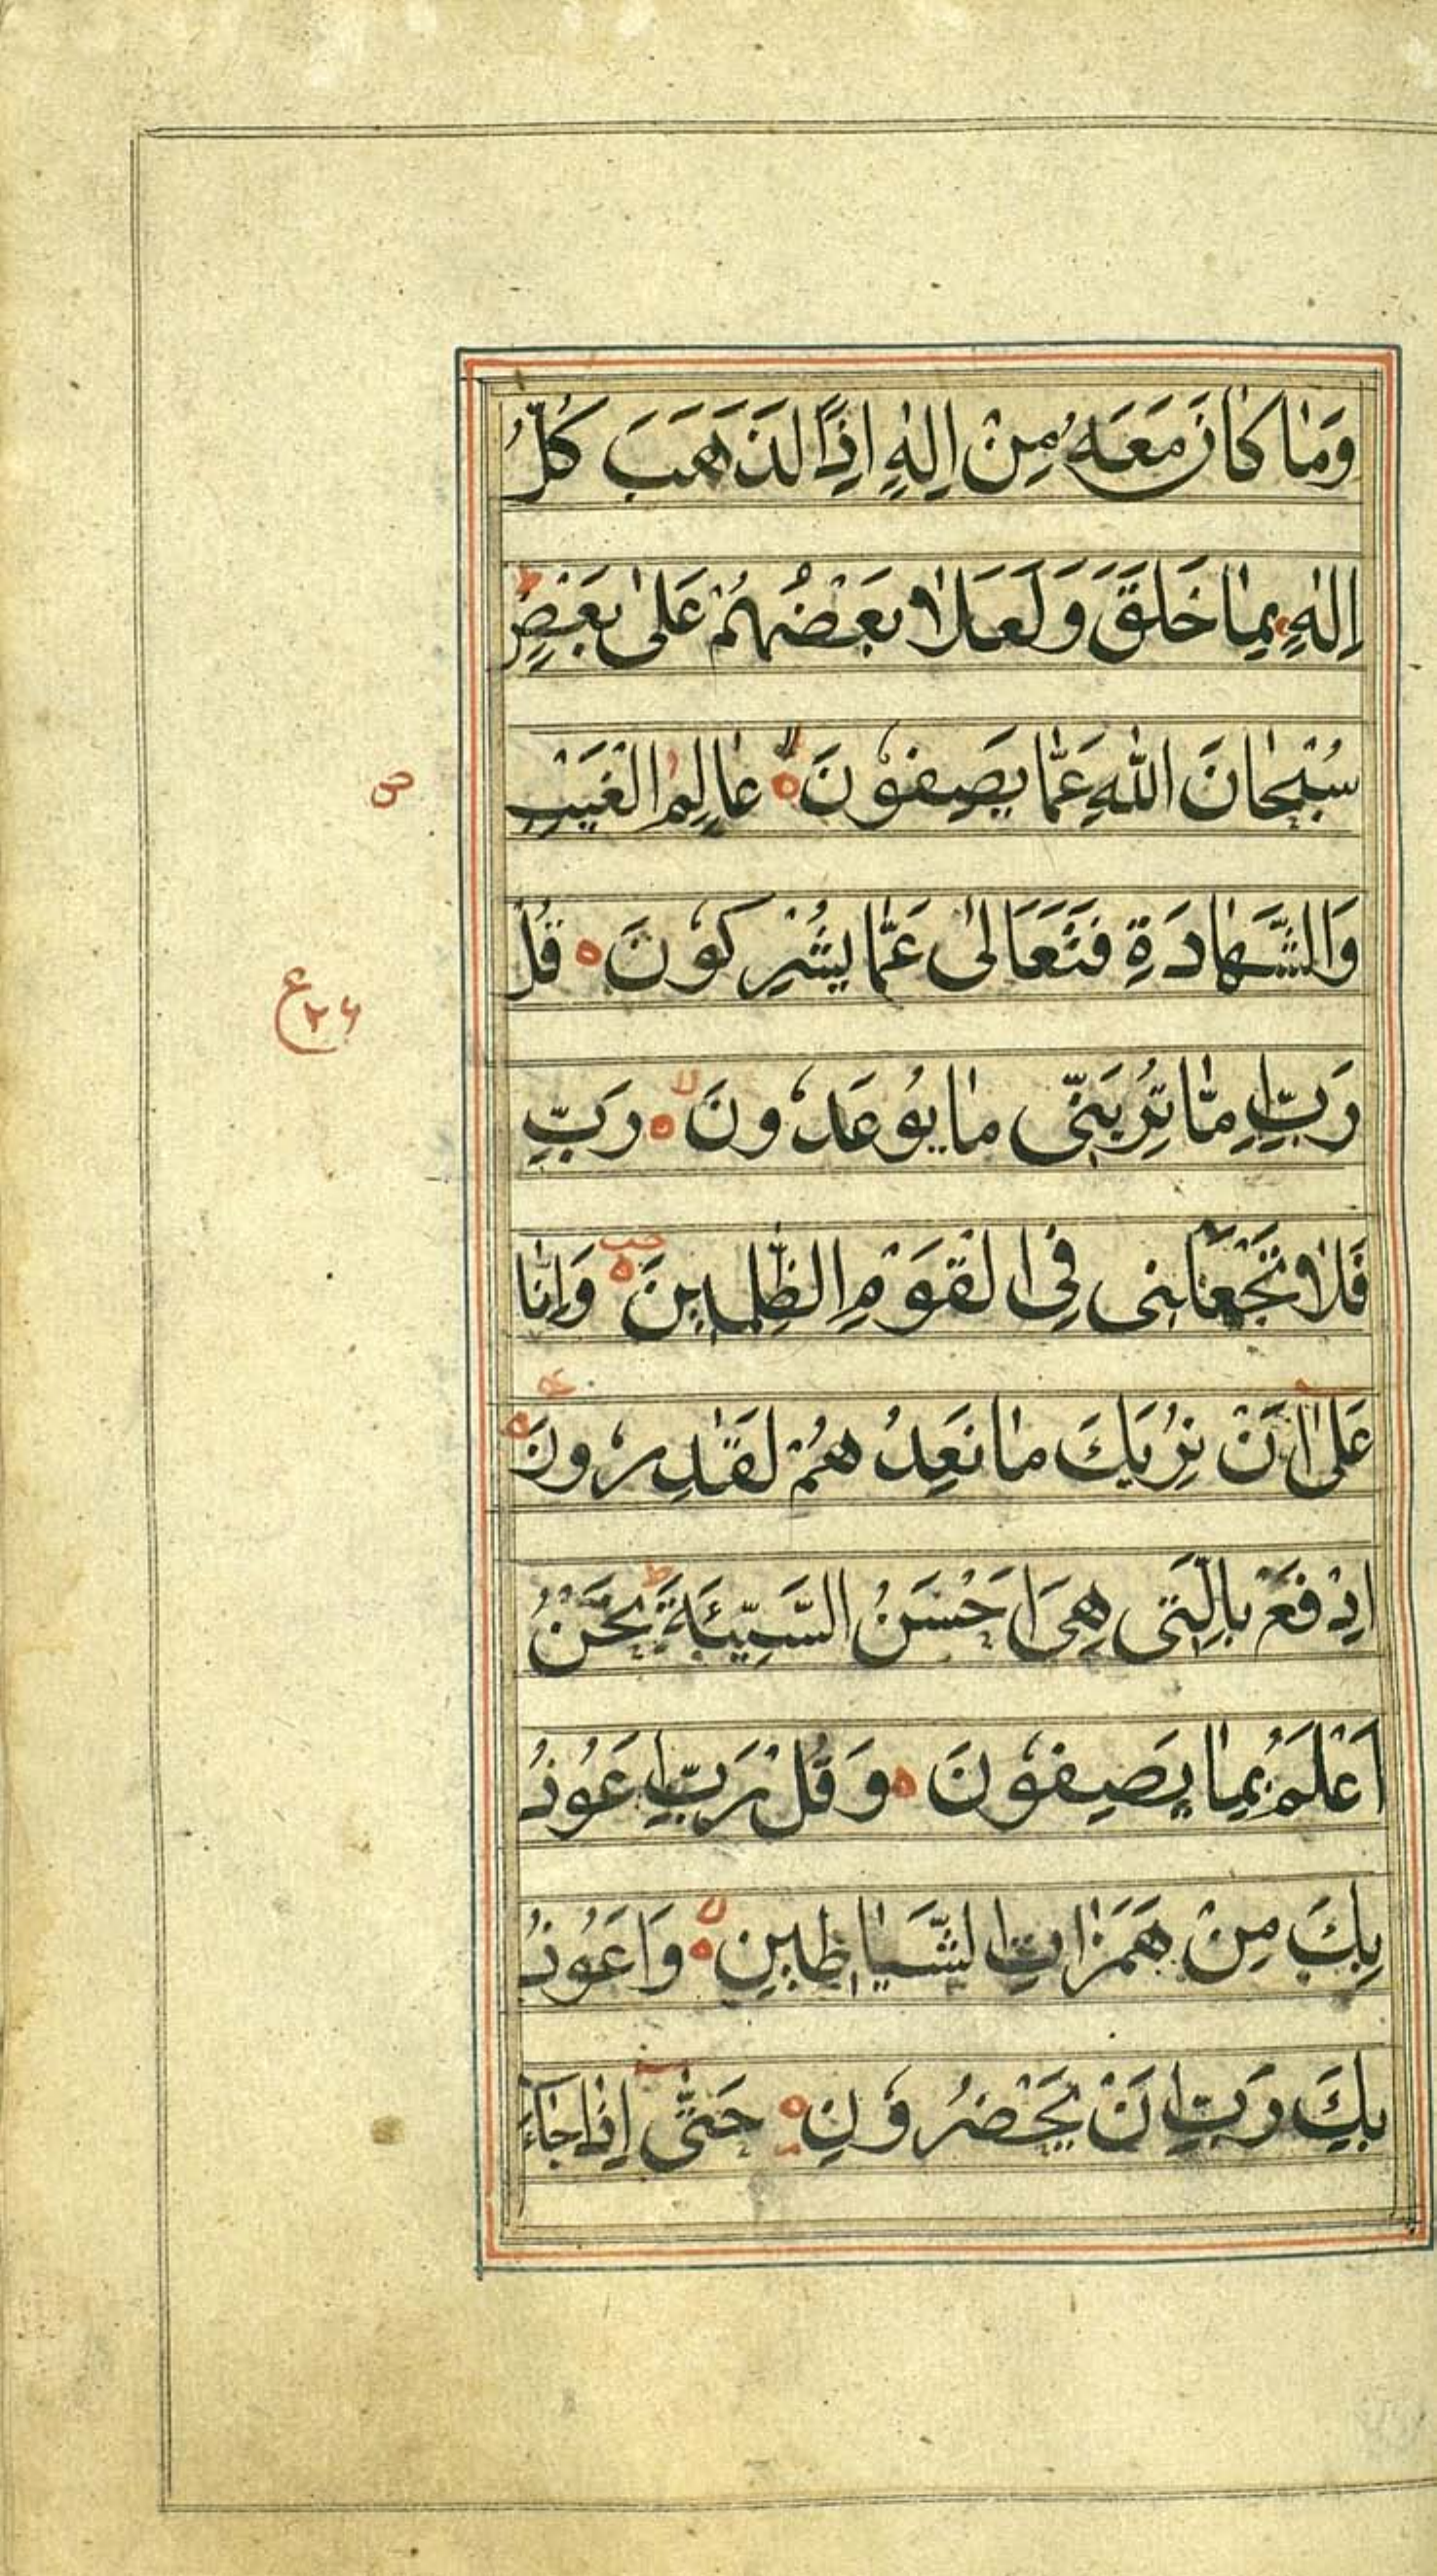 وَمٰا كٰانَ مَعَهُ مِنْ اِلٰهٍ اِذًا لَذَهَبَ كُلُّ
اِلٰهٍ بِمٰا خَلَقَ وَلَعَلٰا بَعْضُهُمْ عَلىٰ بَعْضٍ ط
سُبْحٰانَ اللّٰهِ عَمّٰا يَصِفُونَ ه لا عٰالِمِ الْغَيْبِ
ص
وَالشَّهٰادَةِ فَتَعَالىٰ عَمّٰا يُشْرِكُونَ ه قُلْ
ع ٢٦
رَبِّ اِمّٰا تُرِيَنّى مٰا يُوعَدُونَ ه لا رَبِّ
فَلٰا تَجْعَلْنى فِى الْقَوْمِ الظّٰلِمينَ ه وَاِنّٰا
عَلىٰ اَنْ نُرِيَكَ مٰا نَعِدُهُمْ لَقٰدِرُونَ ه
اِدْفَعْ بِالَّتى هِىَ اَحْسَنُ السَّيِّئَةَ ط نَحْنُ
اَعْلَمُ بِمٰا يَصِفُونَ ه وَقُلْ رَبِّ اَعُوذُ
بِكَ مِنْ هَمَزٰاتِ الشَّيٰاطينِ ه لا وَاَعُوذُ
بِكَ رَبِّ اَنْ يَحْضُرُونِ ه حَتّٰى اِذٰا جٰاءَ